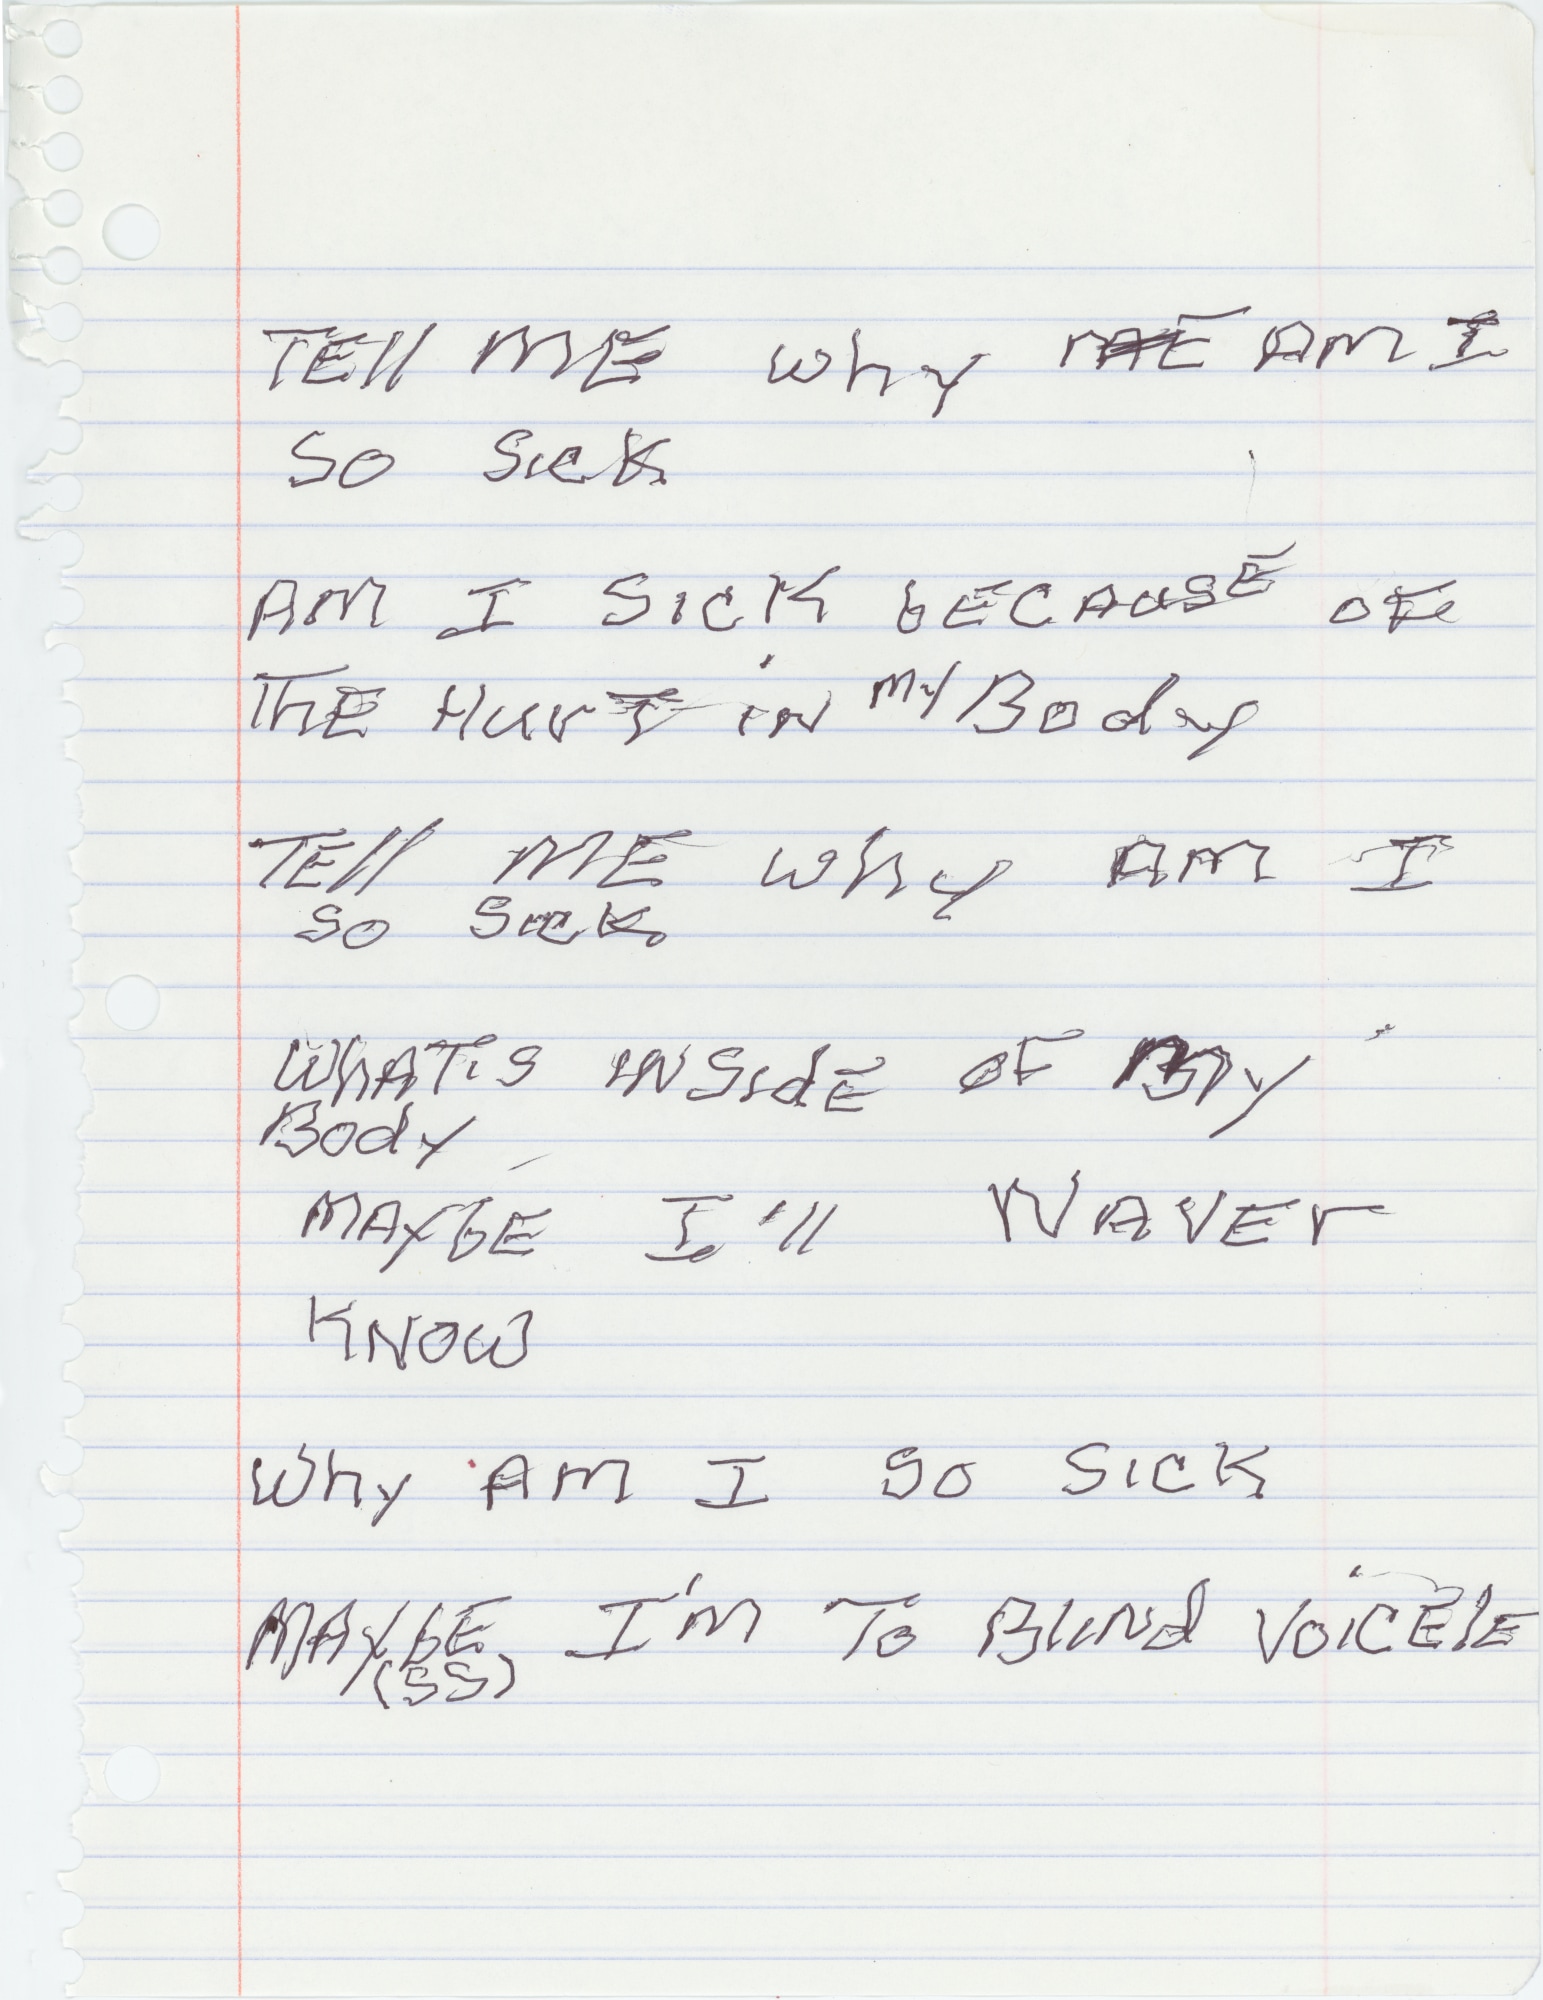 TEll ME why ME AM I
so sick
AM I SICK bECAUSE OF
ThE HurT in My Body
TEll ME why AM I
so sick
WhAT.S INSidE OF My
Body
MAybE I'll NAVEr
KNOW
Why AM I SO SICK
MAybE I'M To BliNd VoiCElE
(SS)